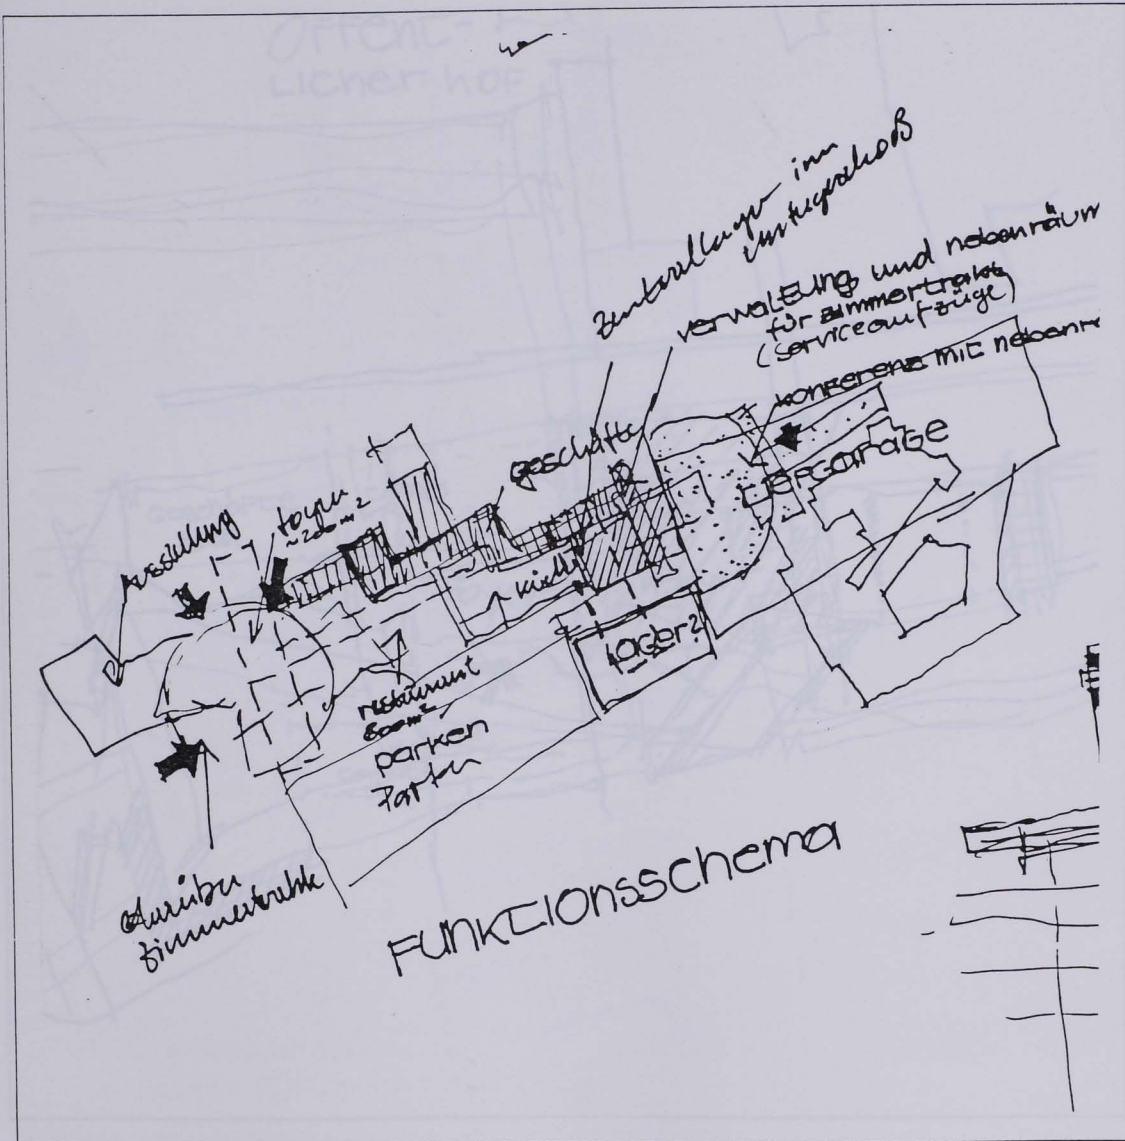 öffent-
licher hof
zentrallager im
untergeschoß
verwaltung und nebenräum
für zimmertrakt
(serviceaufzüge)
konferenz mit nebenr
geschäfte
tiefgarage
Ausstellung
foyer
~200m²
küche
lager?
restaurant
600m²
parken
Parken
darüber
zimmertrakt
FUNKTIONSSCHEMA